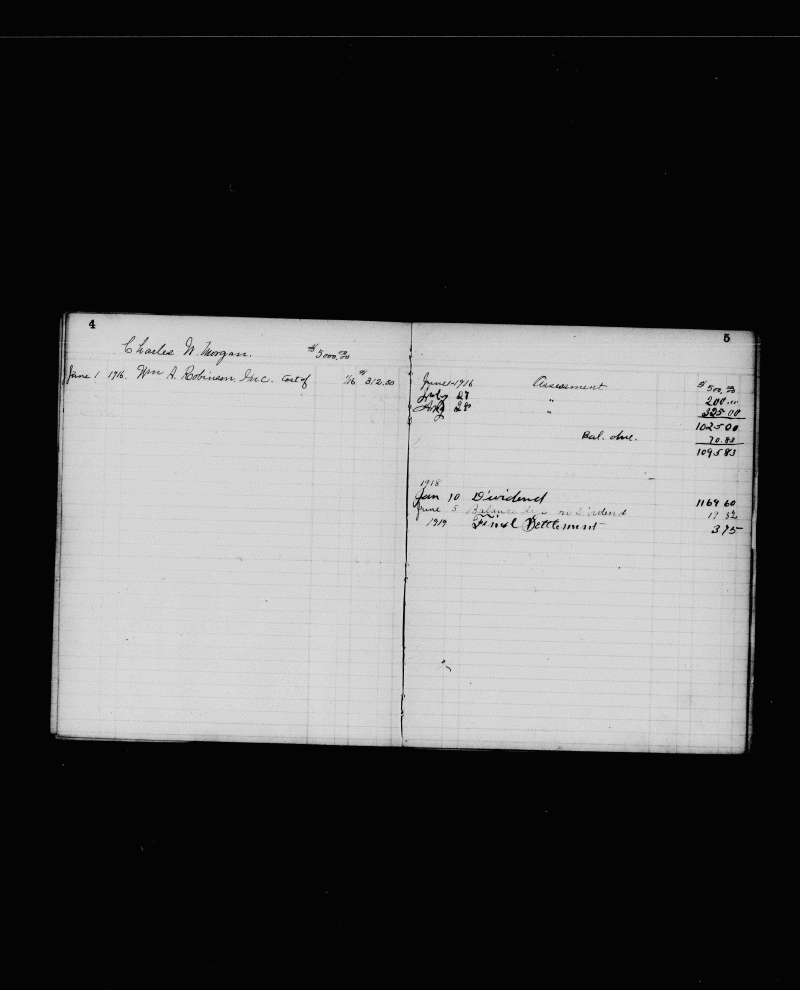 4
Charles W. Morgan. $5000.00
June 1 1916. Wm A. Robinson. Inc. Cost of 1/16 $ 312.50
5
June 1-1916 Assessment $500.00
July 27 200.00
Aug 28 " 325 00
1025 00
Bal. due. 70.83
1095 83
1918
Jan 10 Dividend 1169 60
June 5 Balance on Dividend
1919 Final Settlement 375